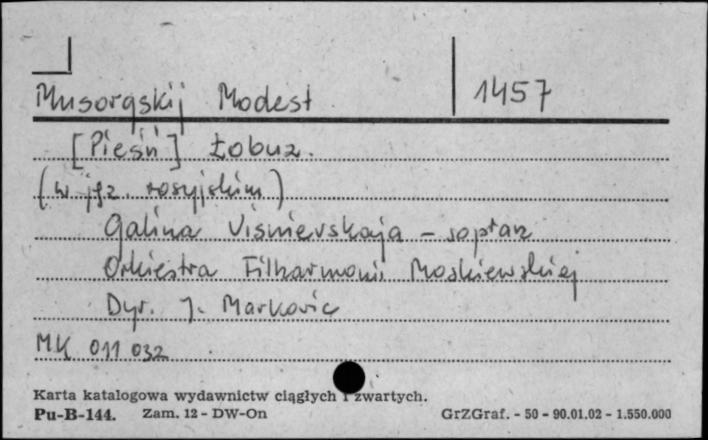 Musorgskij Modest 1457
[Pieśń] Łobuz.
(w jęz. rosyjskim)
Galina Viśnievskaja - sopran
Orkiestra Filharmonii Moskiewskiej
Dyr. J. Markovic
MK 011 032
Karta katalogowa wydawnictw ciągłych i zwartych.
Pu-B-144. Zam. 12 - DW-On GrZGraf. - 50 - 90.01.02 - 1.550.000